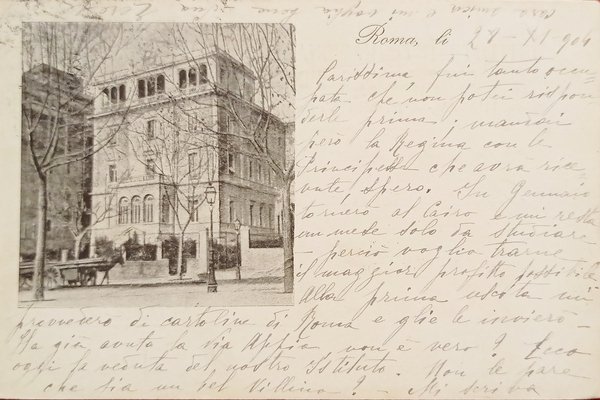 Roma, li 28-XI 904
Carissima fui tanto occu-
pata che non potei rispon-
derle prima; mandai
però la Regina con le
Principesse che avrà rice-
vute, spero. In Gennaio
tornerò al Cairo e mi resta
un mese solo da studiare
perciò voglio trarne
il maggior profitto possibile
Alla prima uscita mi
provvederò di cartoline di Roma e glie le invierò-
Ha già avuta la via Appia non è vero? Ecco
oggi la veduta del nostro Istituto. Non le pare
che sia un bel Villino? - Mi scriva